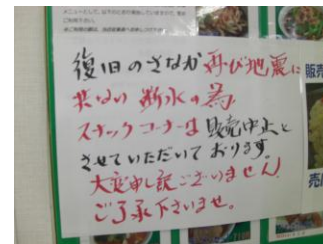 復旧のさなか 再び地震に
共ない 断水の為
スナックコーナーは 販売中止と
させていただいて おります。
大変申し訳ございません!
ご了承下さいませ。
販売
売